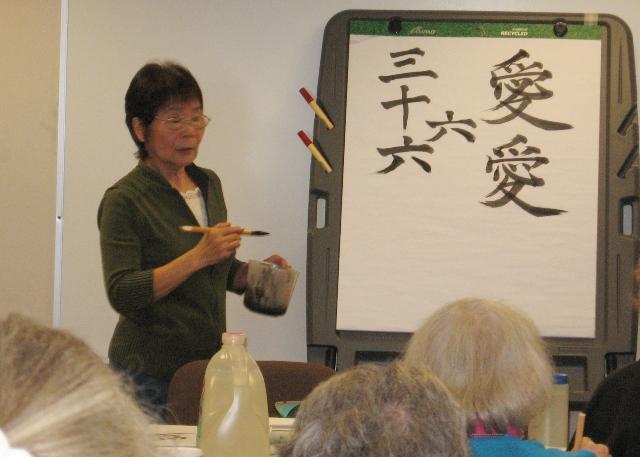 愛愛
六
三十六
RECYCLED